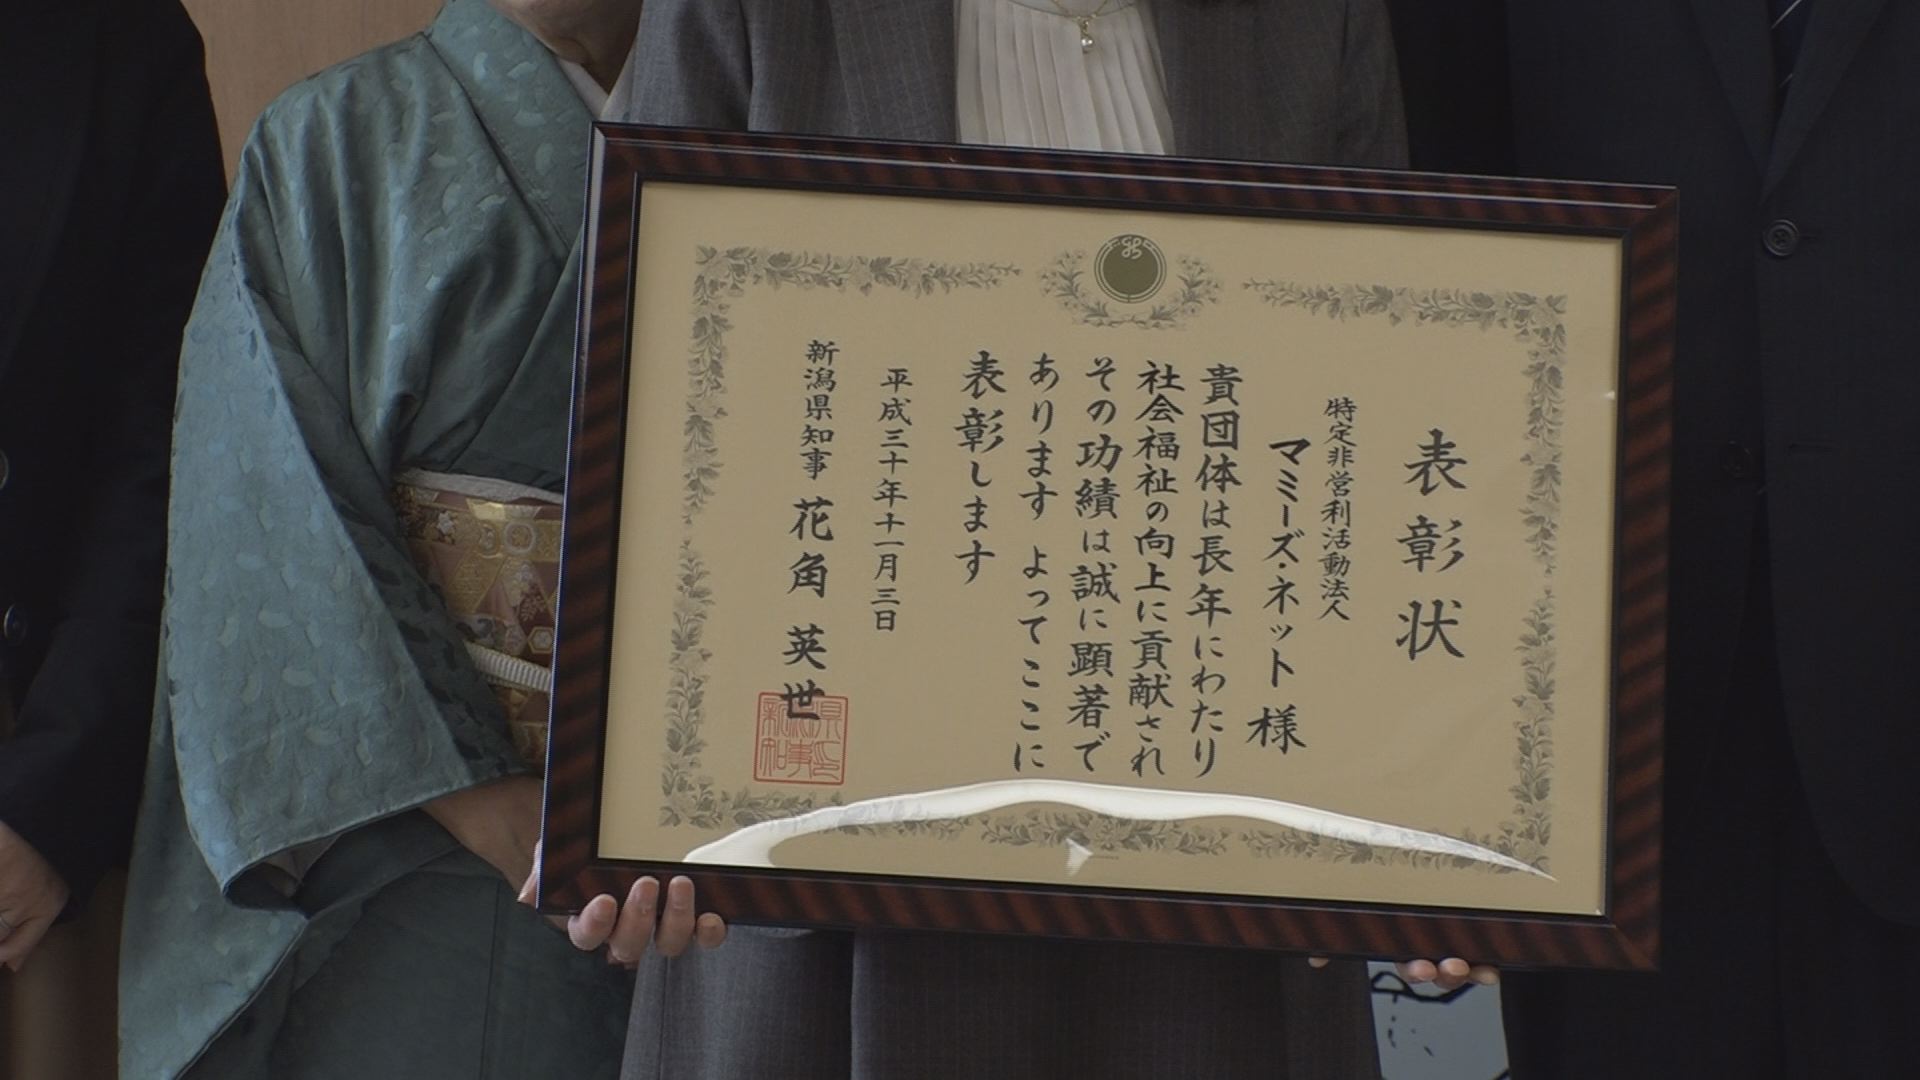 表彰状
特定非営利活動法人
マミーズ・ネット 様
貴団体は長年にわたり
社会福祉の向上に貢献され
その功績は誠に顕著で
あります よってここに
表彰します
平成三十年十一月三日
新潟県知事 花角 英世
新潟県知事印